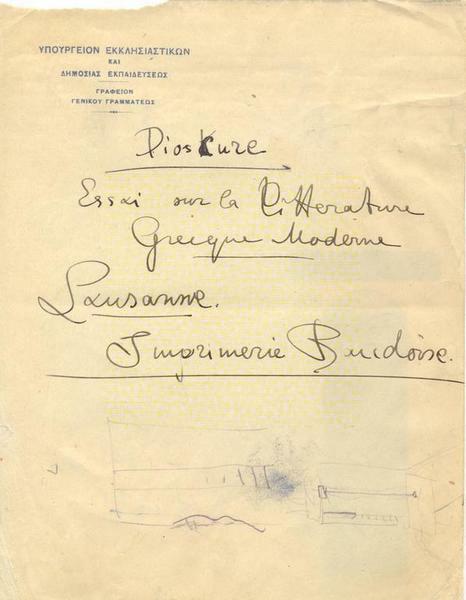 ΥΠΟΥΡΓΕΙΟΝ ΕΚΚΛΗΣΙΑΣΤΙΚΩΝ
ΚΑΙ
ΔΗΜΟΣΙΑΣ ΕΚΠΑΙΔΕΥΣΕΩΣ
ΓΡΑΦΕΙΟΝ
ΓΕΝΙΚΟΥ ΓΡΑΜΜΑΤΕΩΣ
Dioskure
Essai sur la Litterature
Grecque Moderne
Lausanne.
Imprimerie